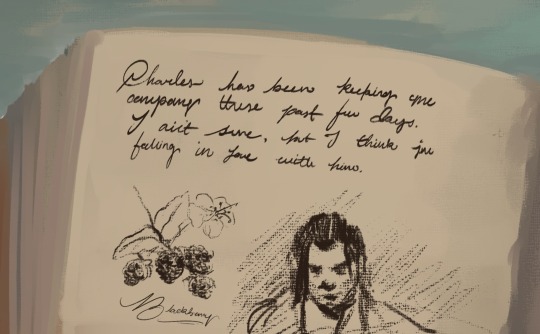 Charles has been keeping me
company these past few days.
I ain't sure, but I think I'm
falling in love with him.
Blackberry